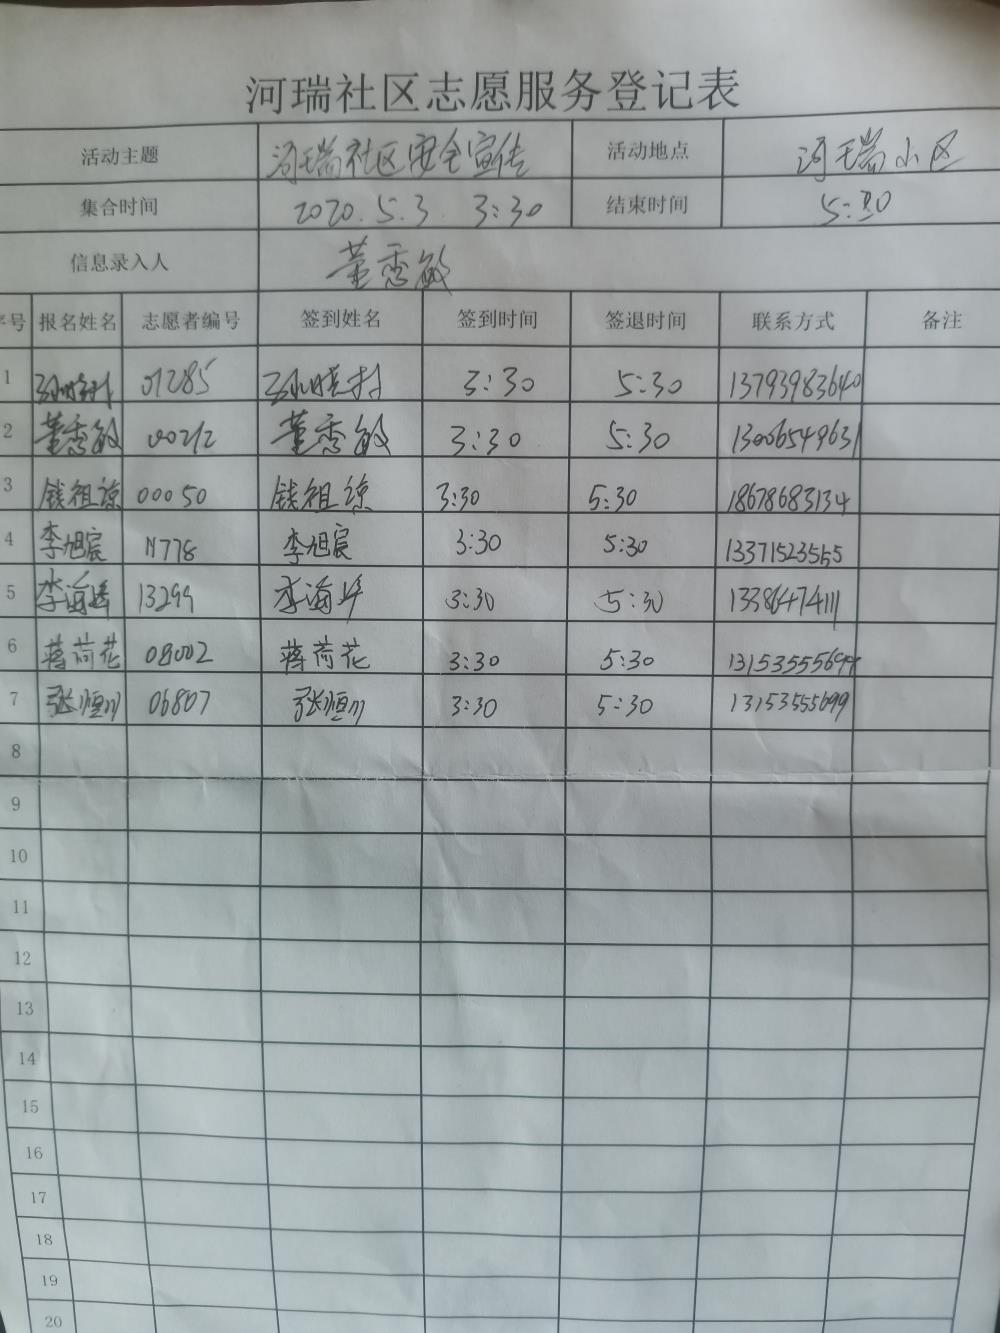 河瑞社区志愿服务登记表
活动主题 河瑞社区安全宣传 活动地点 河瑞小区
集合时间 2020.5.3. 3:30 结束时间 5:30
信息录入人 董秀敏
序号 报名姓名 志愿者编号 签到姓名 签到时间 签退时间 联系方式 备注
1 01285 3:30 5:30 13793983640
2 董秀敏 00212 董秀敏 3:30 5:30 13006549631
3 钱祖谅 00050 钱祖谅 3:30 5:30 18678683134
4 李旭宸 11778 李旭宸 3:30 5:30 13371523565
5 李海峰 13299 李海峰 3:30 5:30 13386474111
6 蒋荷花 08002 蒋荷花 3:30 5:30 13153555699
7 张恒川 06807 张恒川 3:30 5:30 13153555699
8
9
10
11
12
13
14
15
16
17
18
19
20